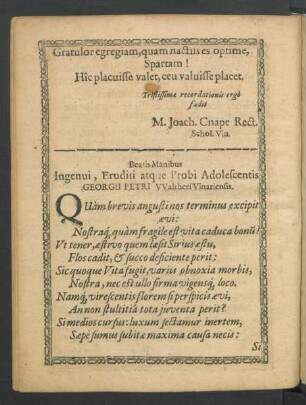 Gratulor egregiam, quam nactus es optime,
Spartam!
Hîc placuisse valet, ceu valuisse placet.
Tristissimæ recordationis ergò
fudit
M. Joach. Cnape Rect.
Schol. Vin.
Beatis Manibus
Ingenui, Eruditi atque Probi Adolescentis
GEORGII PETRI VValtheri Vinariensis.
QUàm brevis angustinos terminus excipit
ævi:
Nostraq́, quàm fragile est vita caduca bonũ!
Vt tener, æstivo quem læsit Sirius æstu,
Flos cadit, & succo deficiente perit;
Sic quoque Vita fugit, variis obnoxia morbis,
Nostra, nec est ullo firma vigensq́, loco.
Namq́, virescentis florem si perspicis ævi,
An non stultitiâ tota juventa perit?
Si medios cursus: luxum sectamur inertem,
Sæpe sumus subitæ maxima causa necis:
Si